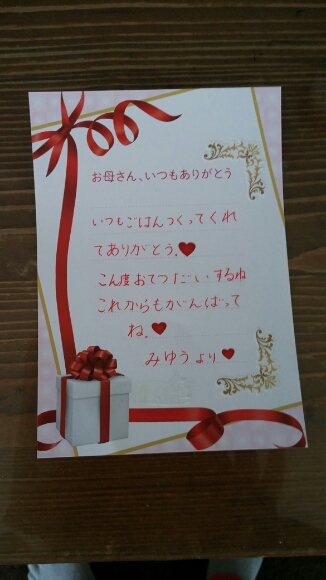 お母さん、いつもありがとう
いつもごはんつくってくれ
てありがとう。
こん度おてつだいするね
これからもがんばって
ね。
みゆうより